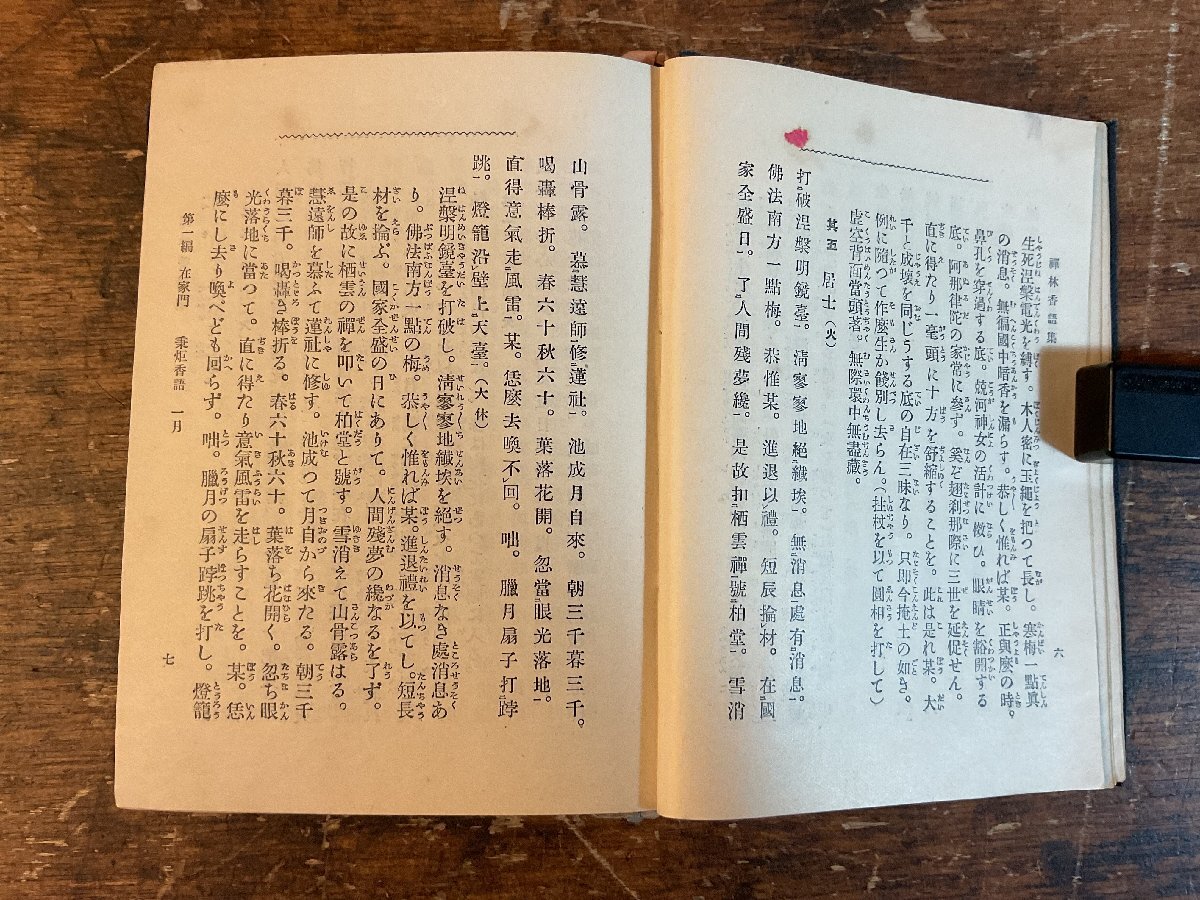 禪林香語集
六
生死涅槃電光を縛す。木人密に玉繩を把つて長し。寒梅一點眞
の消息。無偏國中暗香を漏らす。恭しく惟れば某。正與麼の時。
鼻孔を穿過する底。燒河神女の活計に傚ひ。眼睛を豁開する
底。阿那律陀の家常に參ず。奚ぞ翅刹那際に三世を延促せん。
直に得たり一毫頭に十方を舒縮することを。此は是れ某。大
千と成壞を同じうする底の自在三昧なり。只即今掩土の如き。
例に隨つて作麼生か餞別し去らん。(拄杖を以て圓相を打して)
虚空背面當頭著。無際環中無盡藏。
其五 居士(火)
打破涅槃明鏡臺。淸寥寥地絕纖埃。無消息處有消息。
佛法南方一點梅。恭惟某。進退以禮。短長掄材。在國
家全盛日。了人間殘夢纔。是故扣栖雲禪號柏堂。雪消
山骨露。慕慧遠師修蓮社。池成月自來。朝三千暮三千。
喝轟棒折。春六十秋六十。葉落花開。忽當眼光落地。
直得意氣走風雷。某。恁麼去喚不回。咄。臘月扇子打㱿
跳。燈籠沿壁上天臺。(大休)
涅槃明鏡臺を打破し。淸寥寥地纖埃を絕す。消息なき處消息あ
り。佛法南方一點の梅。恭しく惟れば某。進退禮を以てし。短長
材を掄ぶ。國家全盛の日にありて。人間殘夢の纔なるを了ず。
是の故に栖雲の禪を叩いて柏堂と號す。雪消えて山骨露はる。
慧遠師を慕ふて蓮社に修す。池成つて月自から來たる。朝三千
暮三千。喝轟き棒折る。春六十秋六十。葉落ち花開く。忽ち眼
光落地に當つて。直に得たり意氣風雷を走らすことを。某。恁
麼にし去り喚べども回らず。咄。臘月の扇子𨁝跳を打し。燈籠
第一編 在家門 秉炬香語 一月
七